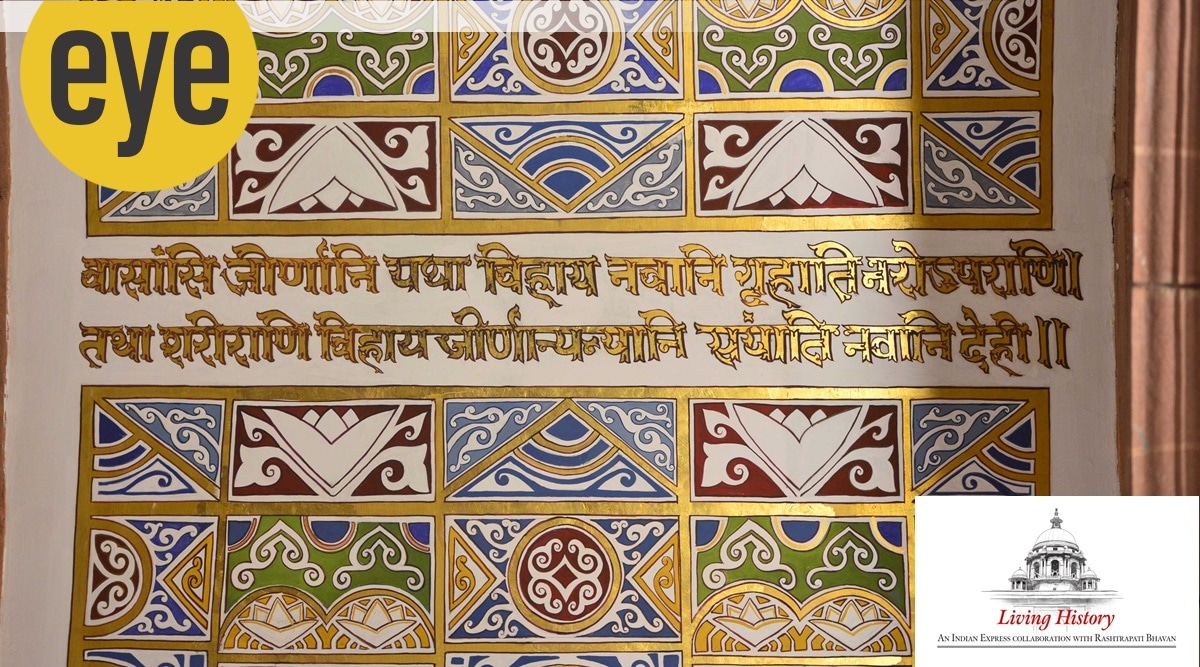 eye
वासांसि जीर्णानि यथा विहाय नवानि गृह्णाति नरोऽपराणि।
तथा शरीराणि विहाय जीर्णान्यन्यानि संयाति नवानि देही॥
Living History
AN INDIAN EXPRESS COLLABORATION WITH RASHTRAPATI BHAVAN